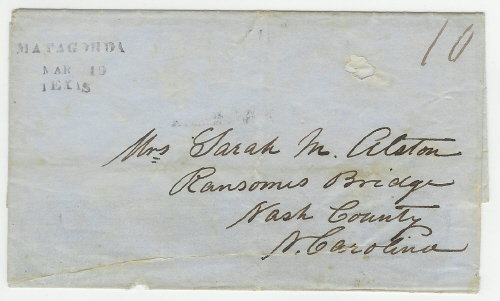 MATAGORDA
MAR 19
TEXAS
10
Mrs Sarah M. Alston
Ransomes Bridge
Nash County
N. Carolina